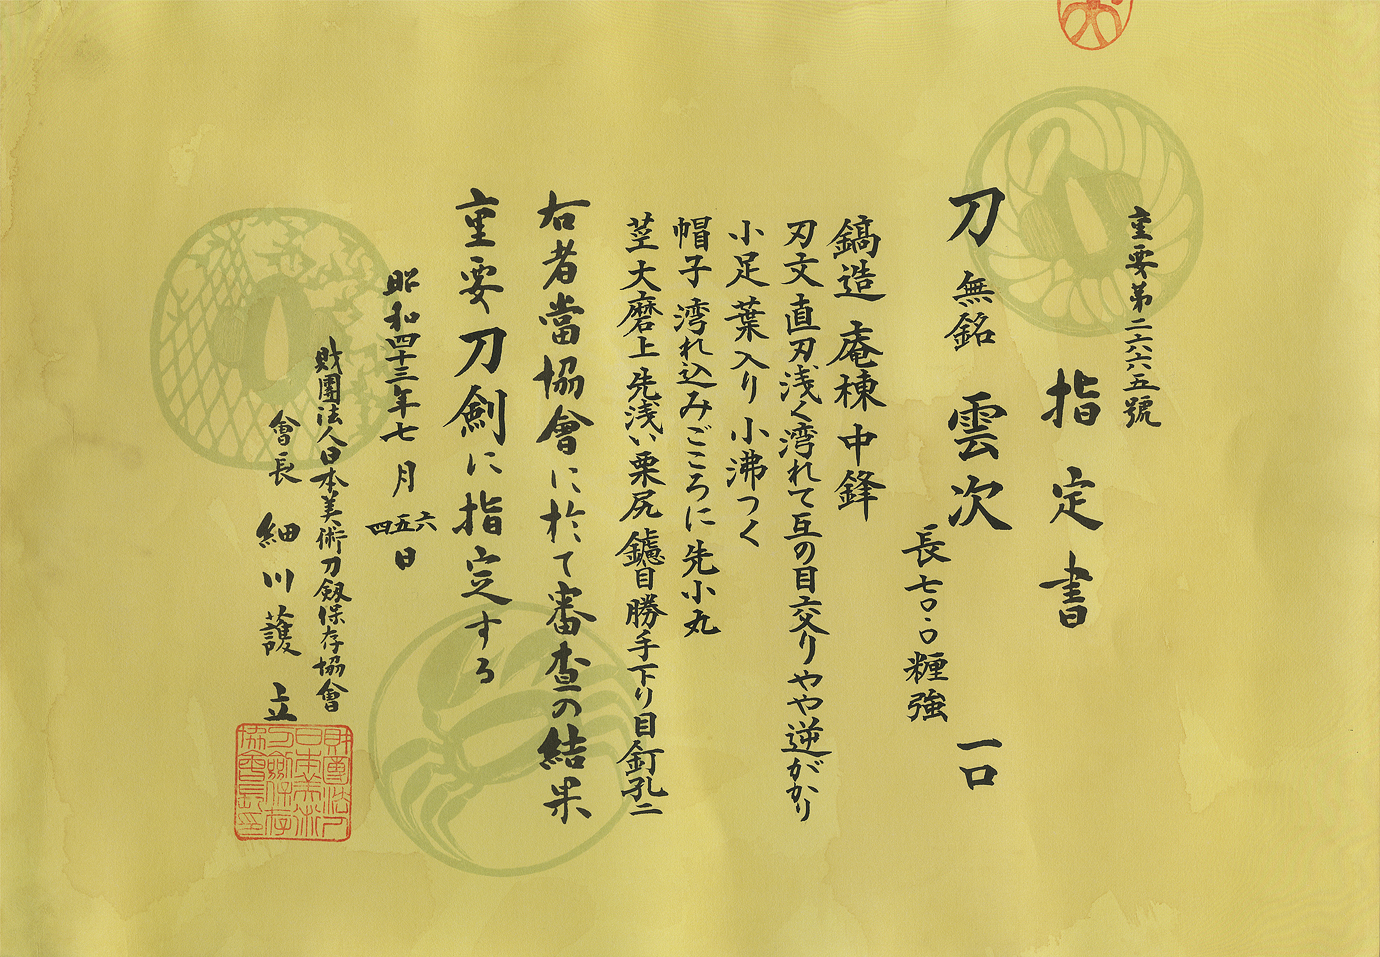 重要第二六六五號
指定書
刀 無銘 雲次 一口
長七〇・〇糎強
鎬造 庵棟 中鋒
刃文 直刃浅く湾れて互の目交り やや逆がかり
小足 葉入り 小沸つく
帽子 湾れ込みごころに 先小丸
茎 大磨上 先浅い栗尻 鑢目勝手下り 目釘孔二
右者當協會に於て審査の結果
重要刀劍に指定する
昭和四十三年七月四五六日
財團法人日本美術刀劔保存協會
會長 細川護立
財團法人日本美術刀劍保存協會長印